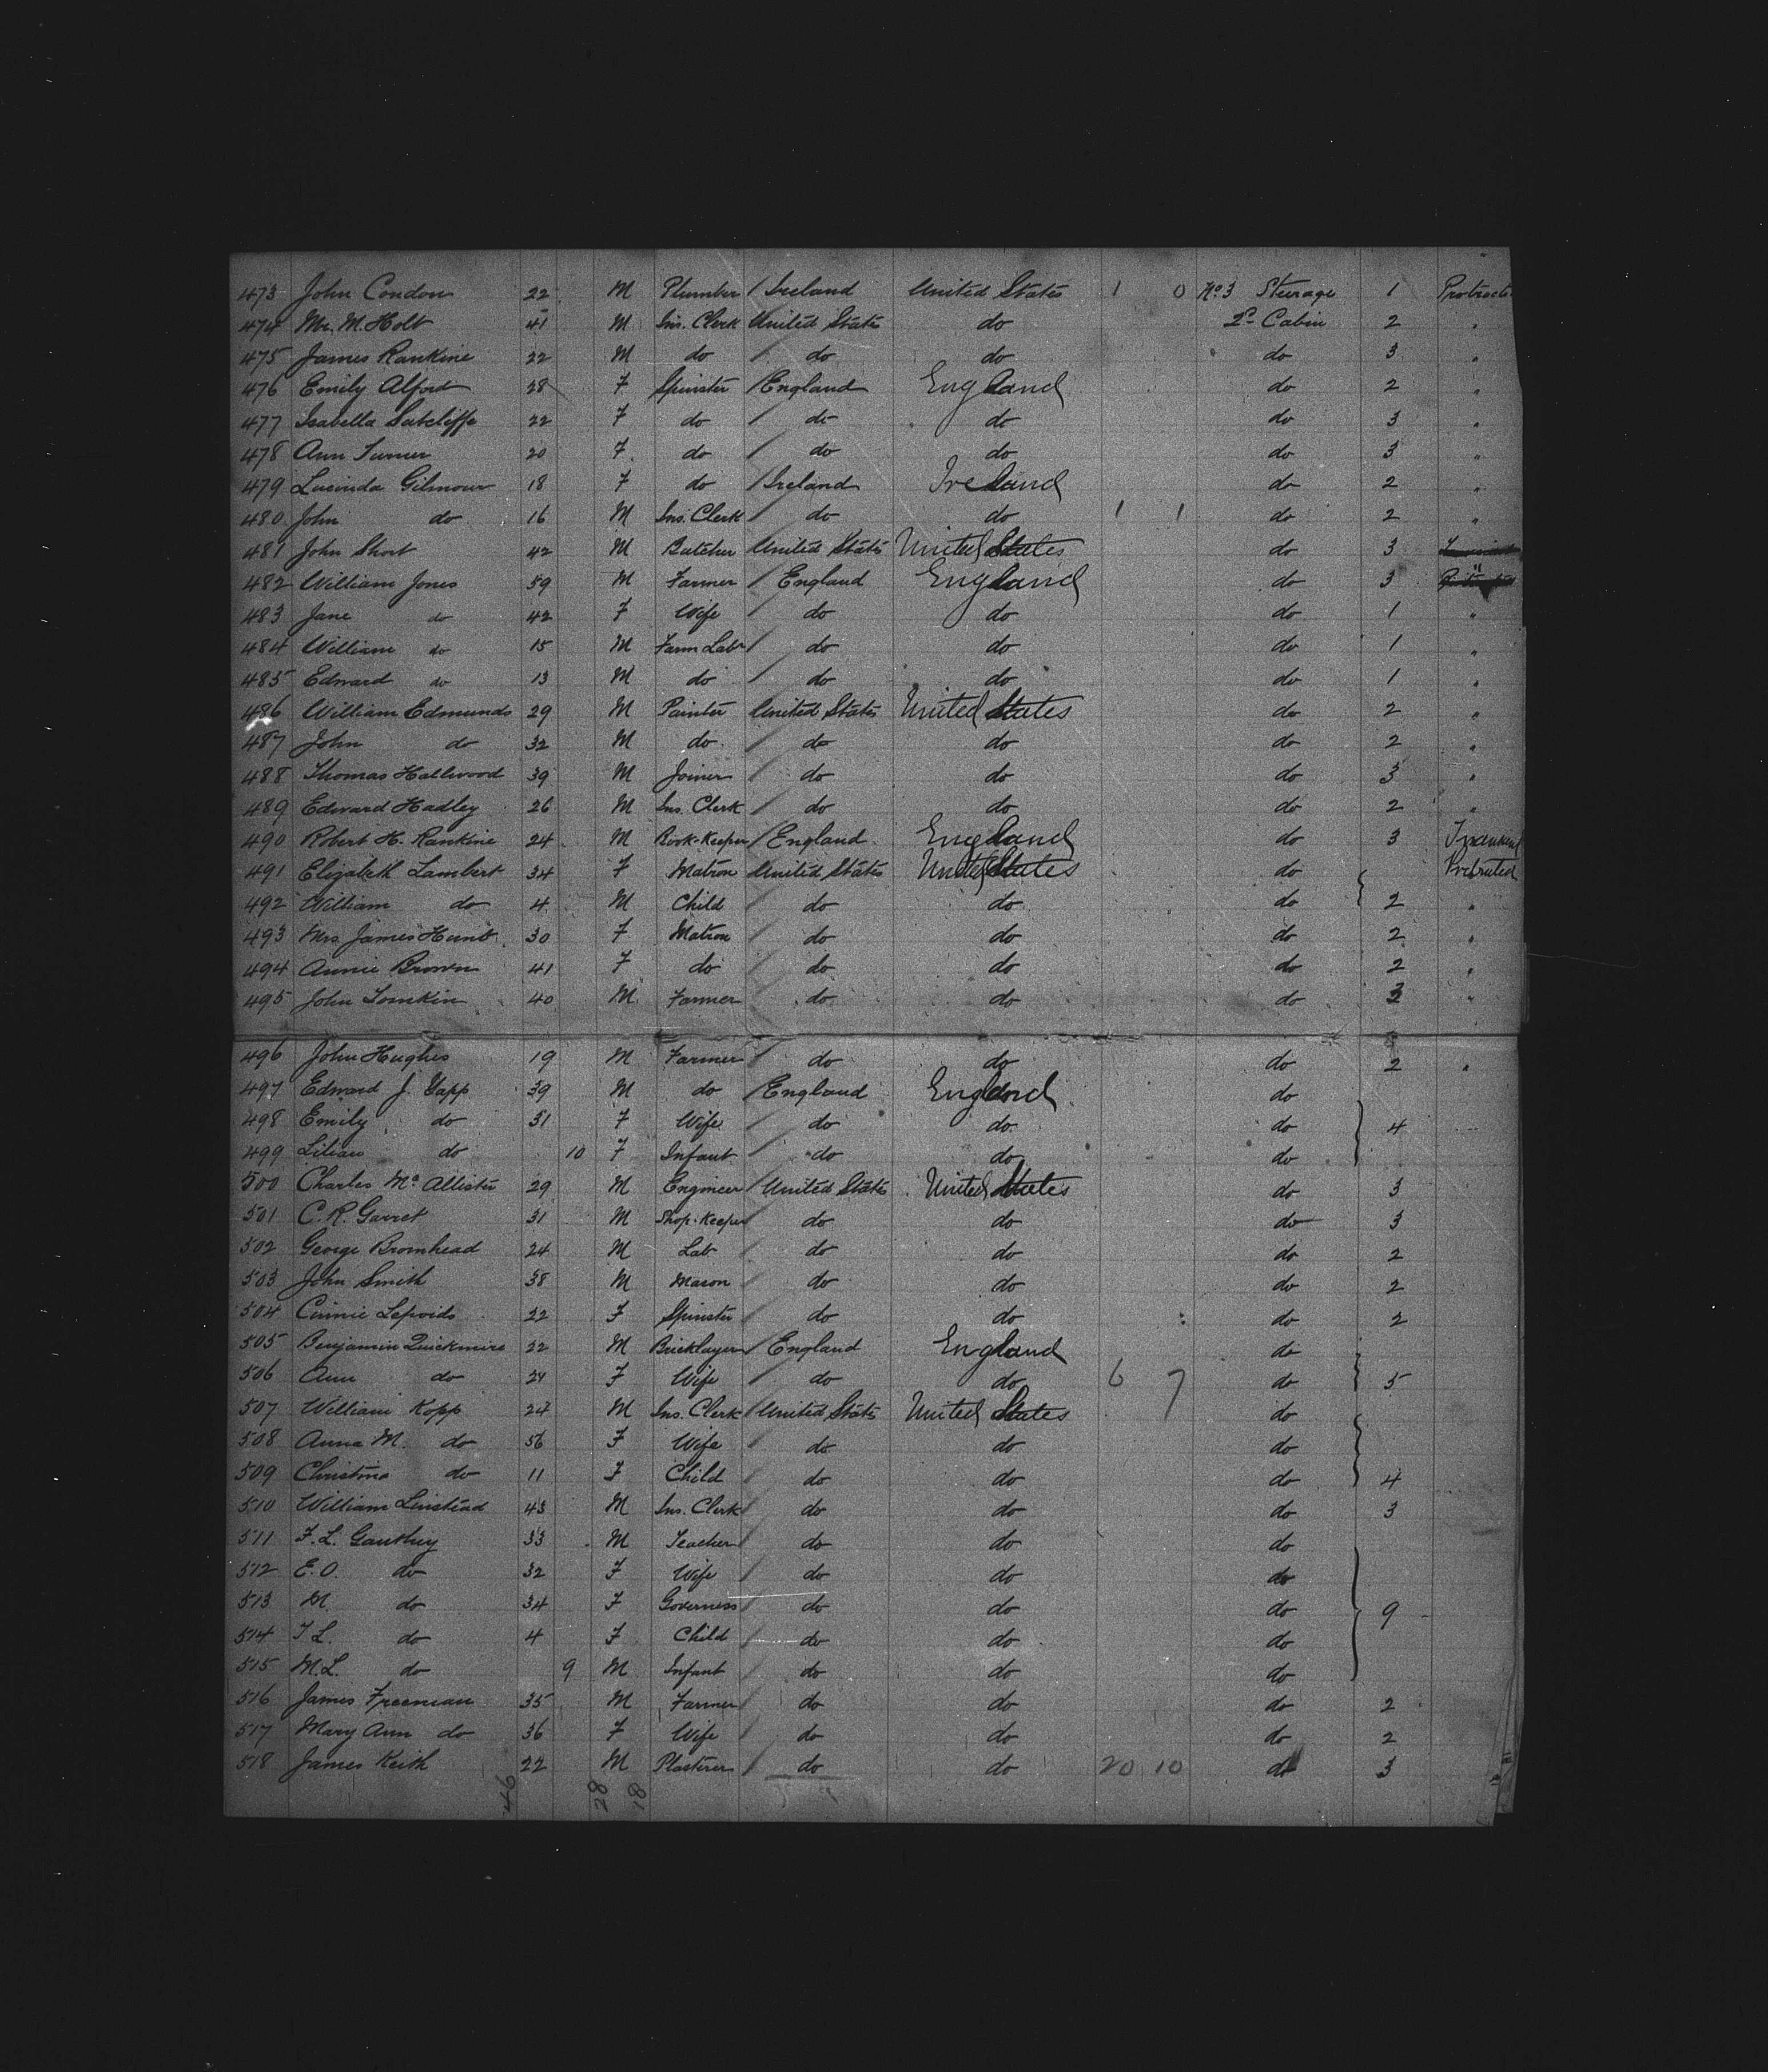 473 John Condon 22 M Plumber / Ireland United States 1 0 No 3 Steerage 1 Protracted
474 Mr. M. Holt 41 M Ins. Clerk United States do 2d Cabin 2 "
475 James Rankine 22 M do / do do do 3 "
476 Emily Alford 28 F Spinster / England England do 2 "
477 Isabella Sutcliffe 22 F do / do do do 3 "
478 Ann Turner 20 F do / do do do 3 "
479 Lucinda Gilmour 18 F do / Ireland Ireland do 2 "
480 John do 16 M Ins. Clerk / do do 1 1 do 2 "
481 John Short 42 M Butcher United States United States do 3
482 William Jones 59 M Farmer / England England do 3 "
483 Jane do 42 F Wife / do do do 1 "
484 William do 15 M Farm Labr / do do do 1 "
485 Edward do 13 M do / do do do 1 "
486 William Edmunds 29 M Painter United States United States do 2 "
487 John do 32 M do / do do do 2 "
488 Thomas Hallwood 39 M Joiner / do do do 3 "
489 Edward Hadley 26 M Ins. Clerk / do do do 2 "
490 Robert H. Rankine 24 M Book-Keeper / England England do 3 Transient
491 Elizabeth Lambert 34 F Matron United States United States do Protracted
492 William do 4 M Child / do do do 2 "
493 Mrs James Hunt 30 F Matron / do do do 2 "
494 Annie Brown 41 F do / do do do 2 "
495 John Tomkin 40 M Farmer / do do do 3 "
496 John Hughes 19 M Farmer / do do do 2 "
497 Edward J. Yapp 39 M do / England England do
498 Emily do 31 F Wife / do do do 4
499 Lilian do 10 F Infant / do do do
500 Charles Mc Allister 29 M Engineer / United States United States do 3
501 C. R. Garret 31 M Shop-Keeper / do do do 3
502 George Bromhead 24 M Lab / do do do 2
503 John Smith 38 M Mason / do do do 2
504 22 F Spinster / do do do 2
505 Benjamin Quickmire 22 M Bricklayer / England England do
506 Ann do 24 F Wife / do do 6 7 do 5
507 William Kopp 27 M Ins. Clerk / United States United States do
508 Anna M. do 56 F Wife / do do do
509 Christina do 11 F Child / do do do 4
510 William Linstead 43 M Ins. Clerk / do do do 3
511 F. L. Gauthey 33 M Teacher / do do do
512 E. O. do 32 F Wife / do do do
513 M. do 34 F Governess / do do do 9
514 do 4 F Child / do do do
515 M. L. do 9 M Infant / do do do
516 James Freeman 35 M Farmer / do do do 2
517 Mary Ann do 36 F Wife / do do do 2
518 James Keith 22 M Plasterer / do do 20 10 do 3
46 28 18